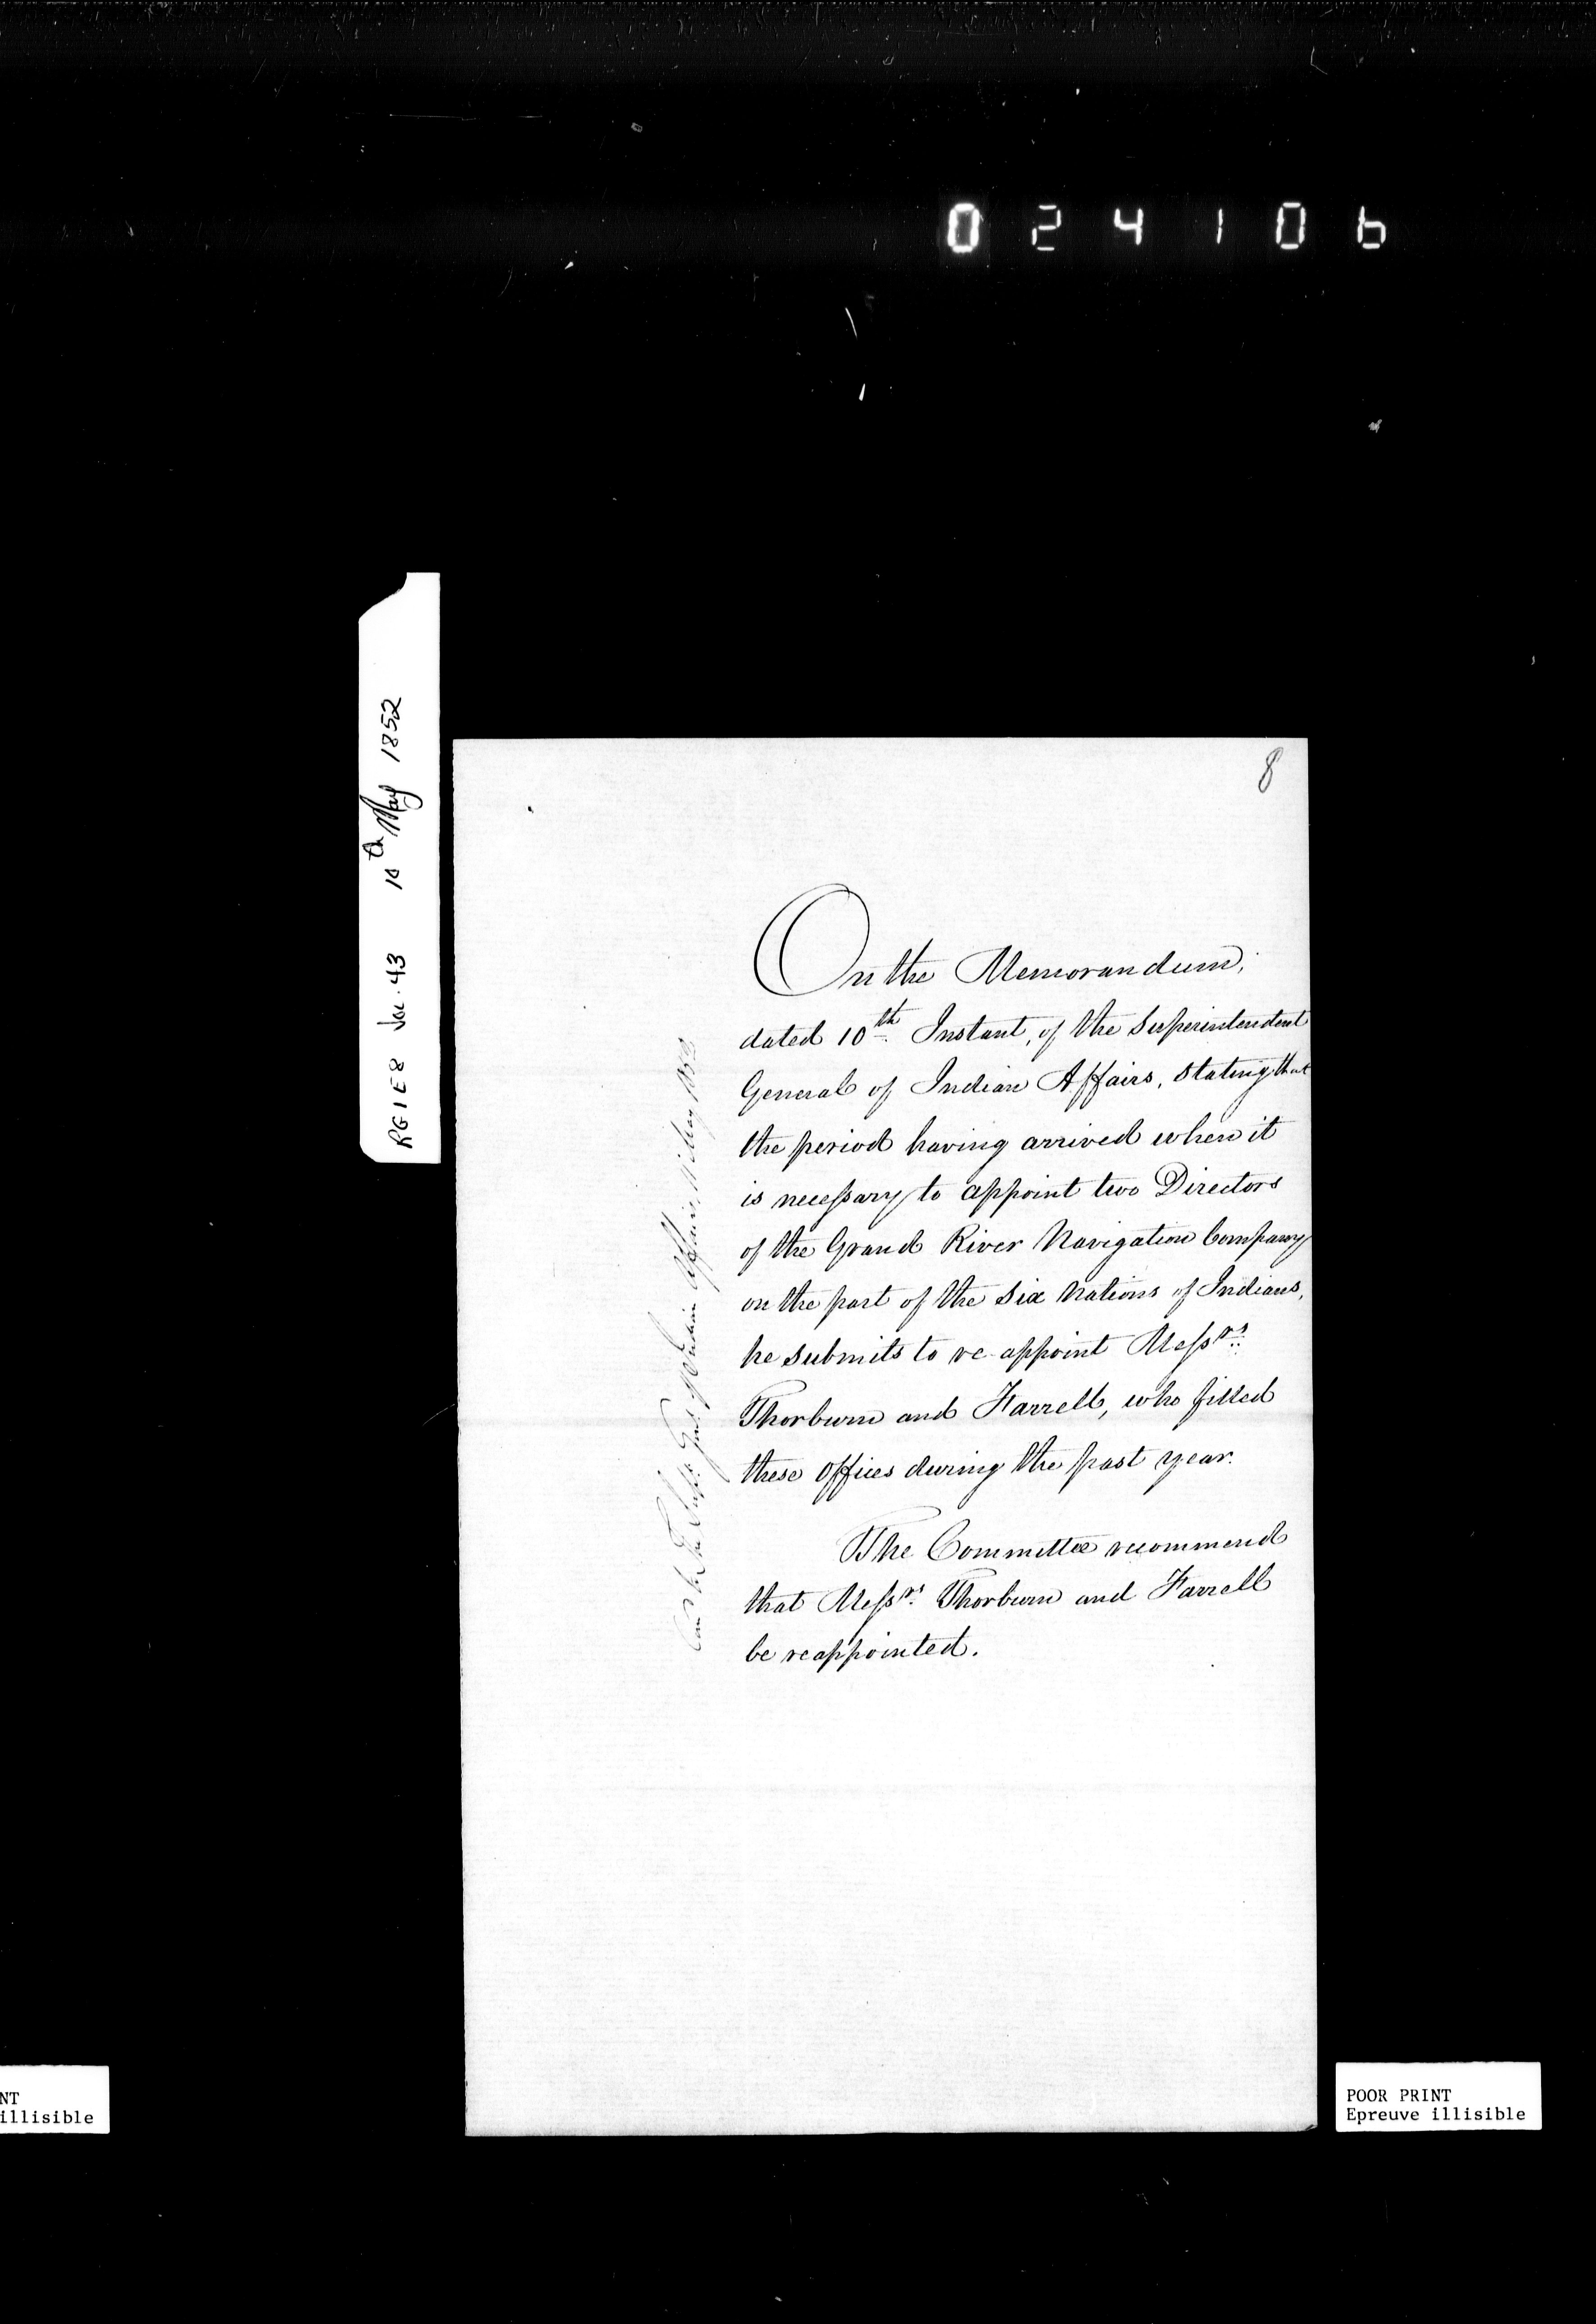 024106
RG1 E8 Vol. 43 10th May 1852
8
On the Memorandum,
dated 10th Instant, of the Superintendent
General of Indian Affairs, stating that
the period having arrived when it
is necessary to appoint two Directors
of the Grand River Navigation Company
on the part of the Six Nations of Indians,
he submits to re-appoint Messrs.
Thorburn and Farrell, who filled
these offices during the past year.
The Committee recommend
that Messrs. Thorburn and Farrell
be reappointed.
of Indian Affairs May 1852
NT
illisible
POOR PRINT
Epreuve illisible